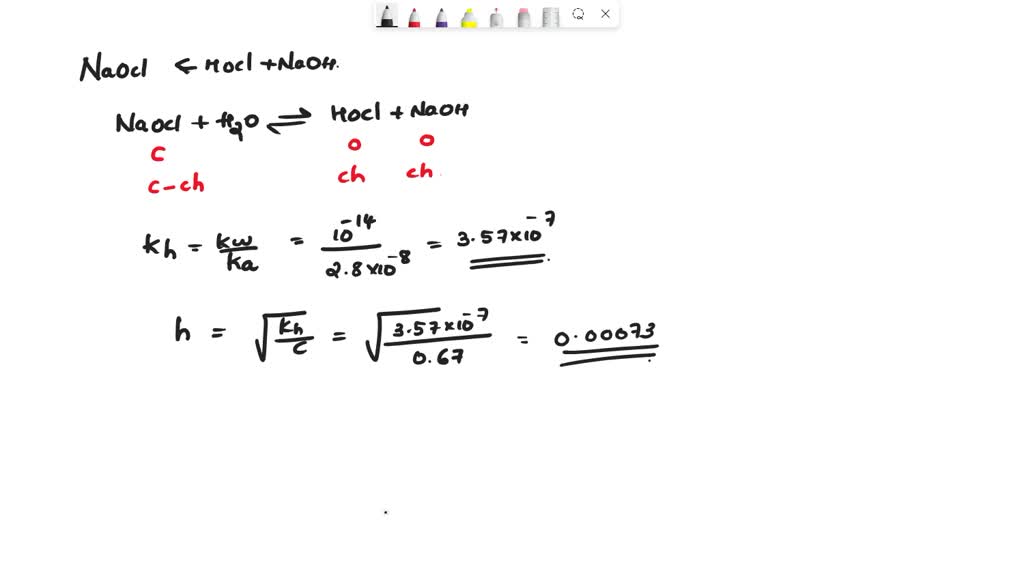 NaOCl ← HOCl + NaOH.
NaOCl + H₂O ⇌ HOCl + NaOH
C O O
C - Ch Ch Ch
Kh = Kw/Ka = 10⁻¹⁴/2.8×10⁻⁸ = 3.57×10⁻⁷
h = √(Kh/C) = √(3.57×10⁻⁷/0.67) = 0.00073